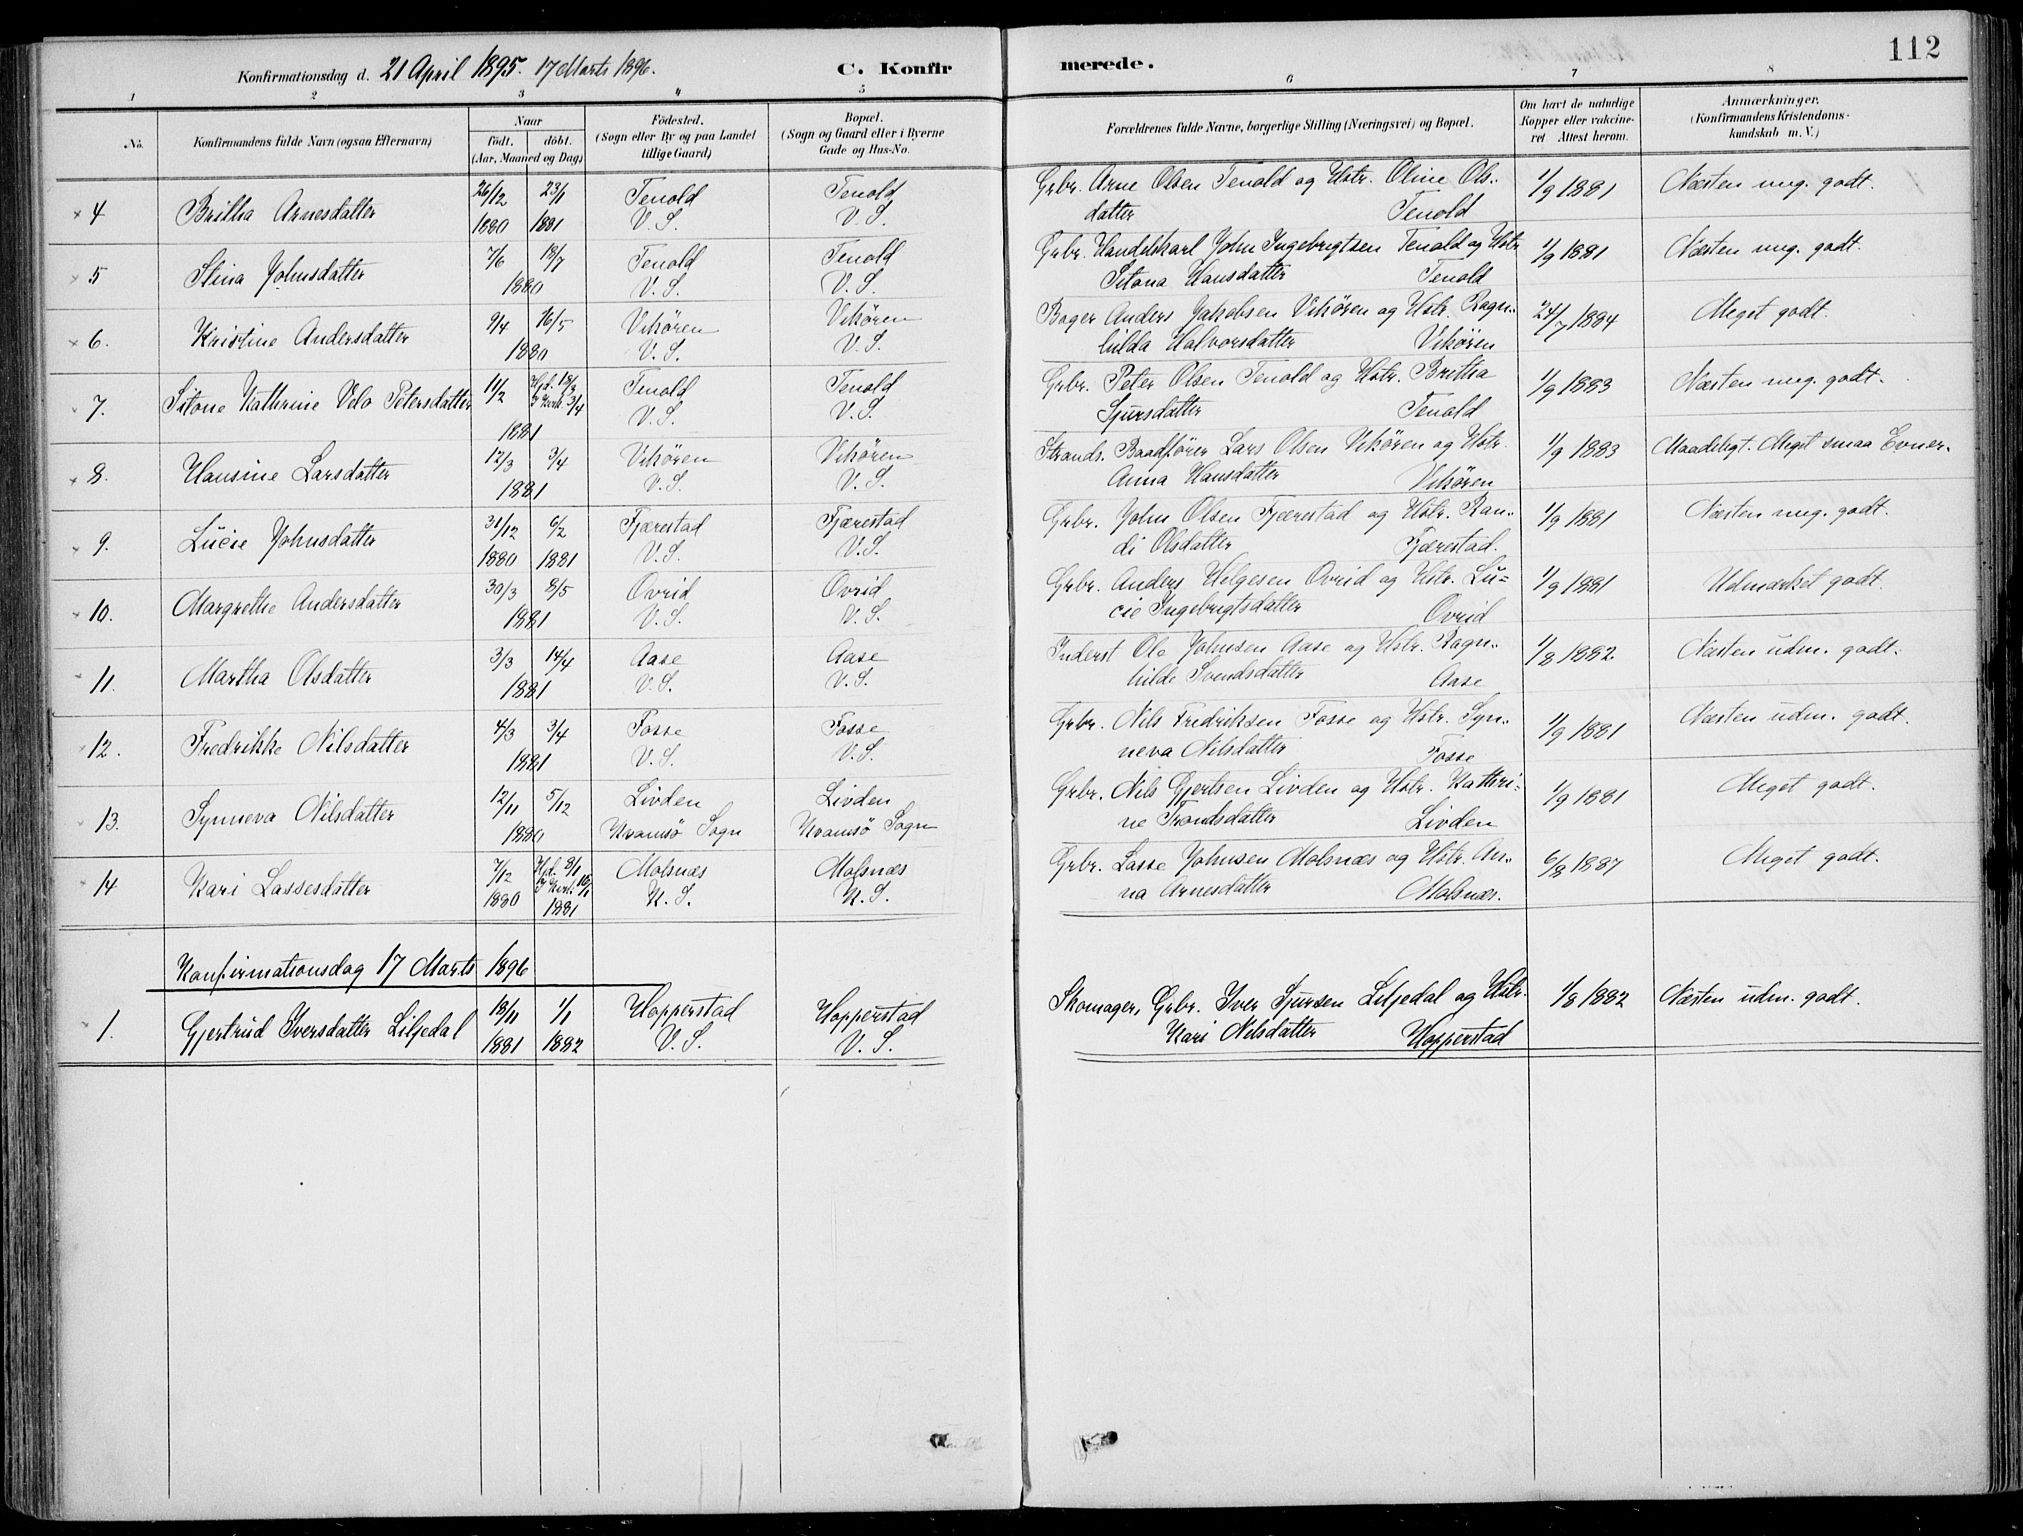 112
Konfirmationsdag d. 21 April 1895. 17 Marts 1896. C. Konfirmerede.
1 2 3 4 5 6 7 8
No. Konfirmandens fulde Navn (ogsaa Efternavn) Naar födt. döbt. (Aar, Maaned og Dag) Födested. (Sogn eller By og paa Landet tillige Gaard) Bopæl. (Sogn og Gaard eller i Byerne Gade og Hus-No. Forældrenes fulde Navne, borgerlige Stilling (Næringsvei) og Bopæl. Om havt de naturlige Kopper eller vakcineret Attest herom. Anmærkninger. (Konfirmandens Kristendomskundskab m. V.)
4 Britha Arnesdatter 26/12 1880 23/1 1881 Tenold V. S. Tenold V. S. Grbr. Arne Olsen Tenold og Hstr. Oline Ols- 1/9 1881 Næsten mg. godt.
datter Tenold
5 Stina Johnsdatter 7/6 18/7 1880 Tenold V. S. Tenold V. S. Grbr. Handelskarl John Ingebrigtsen Tenold og Hstr. 1/9 1881 Næsten mg. godt.
Sitona Hansdatter Tenold
6. Kristine Andersdatter 9/4 16/5 1880 Vikören V. S. Vikören V. S. Bager Anders Jakobsen Vikören og Hstr. Ragn- 24/7 1884 Meget godt.
hilda Halvorsdatter Vikören
7. Sitone Kathrine Velo Petersdatter 11/2 Hjd. 13/2 I Kirk. 3/4 1881 Tenold V. S. Tenold V. S. Grbr. Peter Olsen Tenold og Hstr. Britha 1/9 1883 Næsten mg. godt.
Sjursdatter Tenold
8. Hansine Larsdatter 12/3 3/4 1881 Vikören V. S. Vikören V. S. Strands. Baadfører Lars Olsen Vikören og Hstr. 1/9 1883 Maadeligt. Meget smaa Evner.
Anna Hansdatter Vikören
9. Lucie Johnsdatter 31/12 1880 6/2 1881 Fjærestad V. S. Fjærestad V. S. Grbr. John Olsen Fjærestad og Hstr. Ran- 1/9 1881 Næsten mg. godt.
di Olsdatter Fjærestad.
10. Margrethe Andersdatter 30/3 8/5 1881 Ovrid V. S. Ovrid V. S. Grbr. Anders Helgesen Ovrid og Hstr. Lu- 1/9 1881 Udmærket godt.
cie Ingebrigtsdatter Ovrid
11. Martha Olsdatter 3/3 14/4 1881 Aase V. S. Aase V. S. Inderst Ole Johnsen Aase og Hstr. Ragn- 1/8 1882. Næsten udm. godt.
hilde Svendsdatter Aase
12. Fredrikke Nilsdatter 4/3 3/4 1881 Fosse V. S. Fosse V. S. Grbr. Nils Fredriksen Fosse og Hstr. Syn- 1/9 1881 Næsten udm. godt.
neva Nilsdatter Fosse
13. Synneva Nilsdatter 12/11 5/12 1880 Livden Kvamsö Sogn Livden Kvamsö Sogn Grbr. Nils Gjertsen Livden og Hstr. Kathri- 1/9 1881 Meget godt.
ne Trondsdatter Livden
14 Kari Lassesdatter 7/12 1880 Hjd. 8/1 I Kirk. 1881 Molsnæs K. S. Molsnæs K. S. Grbr. Lasse Johnsen Molsnæs og Hstr. An- 6/8 1887 Meget godt.
na Arnesdatter Molsnæs.
Konfirmationsdag 17 Marts 1896
1. Gjertrud Iversdatter Liljedal 18/11 1881 1/1 1882 Hopperstad V. S. Hopperstad V. S. Skomager, Grbr. Iver Sjursen Liljedal og Hstr. 1/8 1882 Næsten udm. godt.
Kari Nilsdatter Hopperstad